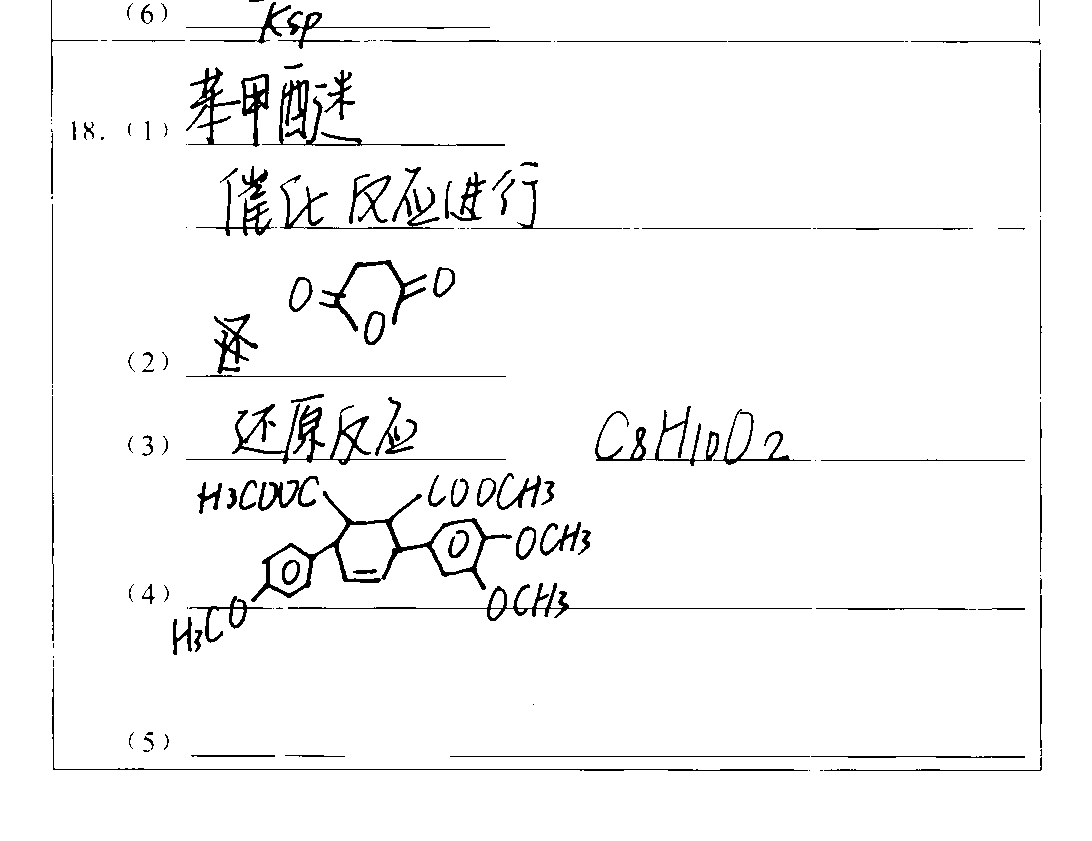 (6) Ksp
18. (1) 苯甲醚
催化反应进行
O O
O
(2)
(3) 还原反应 C8H10O2
H3COOC COOCH3
OCH3
(4) OCH3
H3CO
(5)